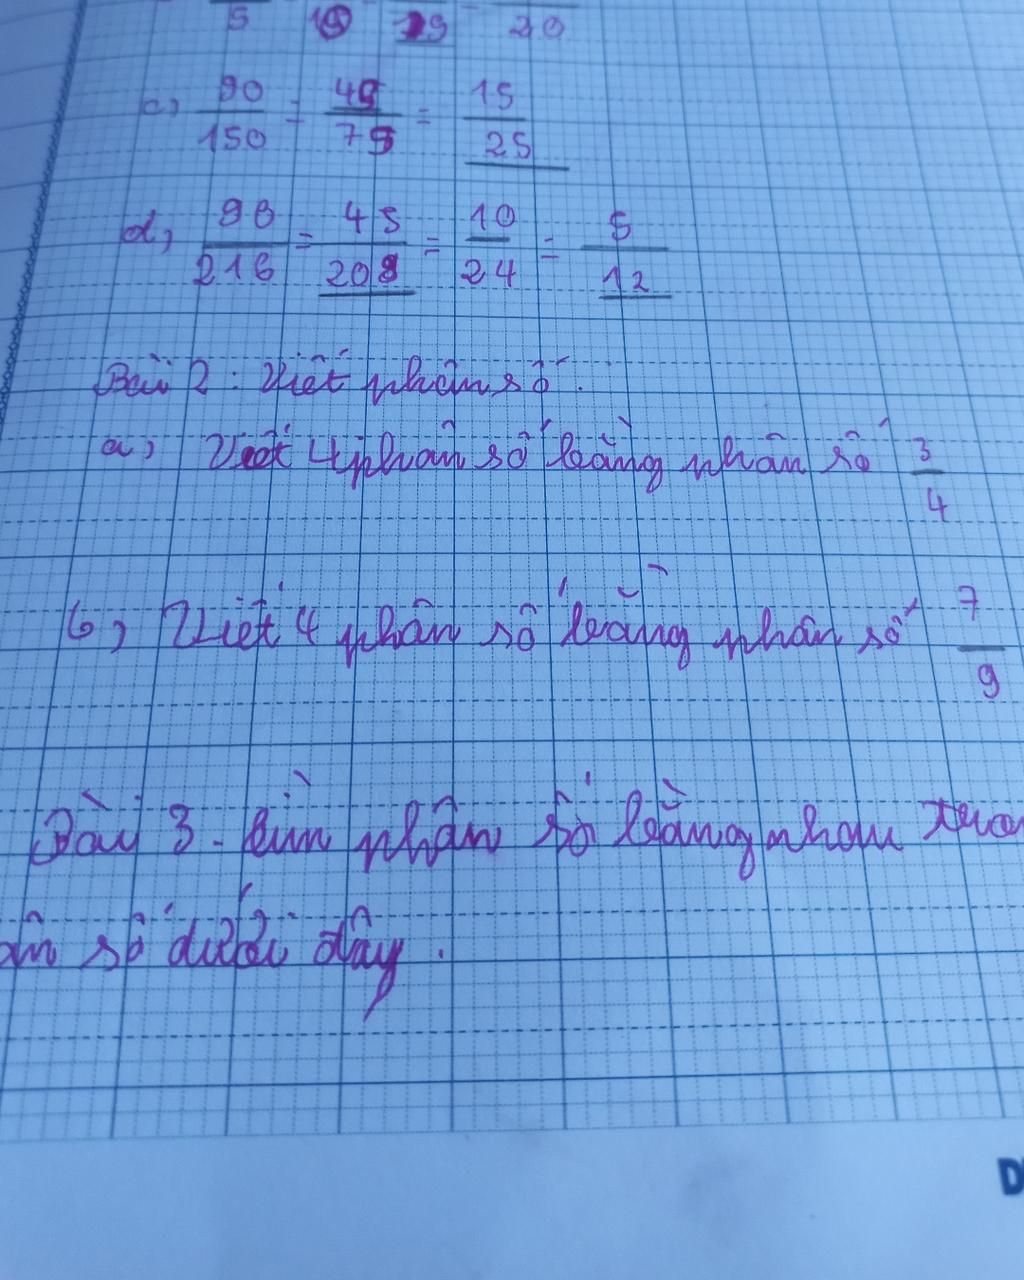 5 19 20
c) 90/150 = 45/75 = 15/25
d) 90/216 = 45/208 = 10/24 = 5/12
Bài 2: Viết phân số.
a) Viết 4 phân số bằng phân số 3/4
b) Viết 4 phân số bằng phân số 7/9
Bài 3. tìm phân số bằng nhau
số dưới đây.
D